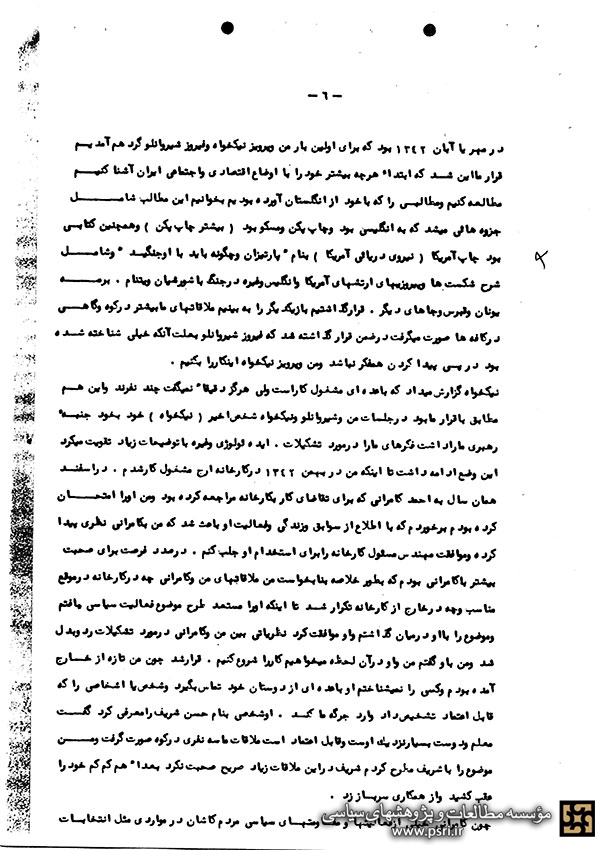 - ٦ -
در مهر یا آبان ١٣٤٢ بود که برای اولین بار من وپرویز نیکخواه وفیروز شیروانلو گرد هم آمدیم
قرار ما این شد که ابتدا" هرچه بیشتر خود را با اوضاع اقتصادی واجتماعی ایران آشنا کنیم
مطالعه کنیم ومطالبی را که با خود از انگستان آورده بودیم بخوانیم این مطالب شامل
جزوه هائی میشد که به انگلیسی بود وچاپ پکن ومسکو بود ( بیشتر چاپ پکن ) وهمچنین کتابی
بود چاپ آمریکا ( نیروی دریائی آمریکا ) بنام " پارتیزان وچگونه باید با اوجنگید " وشامل
شرح شکست ها وپیروزیهای ارتشهای آمریکا وانگلیس وغیره در جنگ با شورشیان ویتنام . برمه
یونان وقبرس وجاهای دیگر . قرار گذاشتیم بازیکدیگر را به بینیم ملاقاتهای ما بیشتر در کوه وگاهی
در کافه ها صورت میگرفت در ضمن قرار گذاشته شد که فیروز شیروانلو بعلت آنکه خیلی شناخته شده
بود در پی پیدا کردن همفکر نباشد ومن وپرویز نیکخواه اینکار را بکنیم .
نیکخواه گزارش میداد که با عده ای مشغول کار است ولی هرگز دقیقا" نمیگفت چند نفرند واین هم
مطابق با قرار ما بود در جلسات من وشیروانلو ونیکخواه شخص اخیر ( نیکخواه ) خود بخود جنبه
رهبری ما را داشت فکرهای ما را در مورد تشکیلات . ایده ئولوژی وغیره با توضیحات زیاد تقویت میکرد
این وضع ادامه داشت تا اینکه من در بهمن ١٣٤٢ در کارخانه ارج مشغول کار شدم . در اسفند
همان سال به احمد کامرانی که برای تقاضای کار بکارخانه مراجعه کرده بود ومن اورا امتحان
کرده بودم برخوردم که با اطلاع از سوابق وزندگی وفعالیت او باعث شد که من بکامرانی نظری پیدا
کرده وموافقت مهندس مسئول کارخانه را برای استخدام او جلب کنم . در صدد فرصت برای صحبت
بیشتر با کامرانی بودم که بطور خلاصه بنا بخواست من ملاقاتهای من وکامرانی چه در کارخانه در موقع
مناسب وچه در خارج از کارخانه تکرار شد تا اینکه اورا مستعد طرح موضوع فعالیت سیاسی یافتم
وموضوع را با او در میان گذاشتم واو موافقت کرد نظریاتی بین من وکامرانی در مورد تشکیلات رد وبدل
شد ومن با و گفتم من واو در آن لحظه میخواهیم کار را شروع کنیم . قرار شد چون من تازه از خارج
آمده بودم وکسی را نمیشناختم او با عده ای از دوستان خود تماس بگیرد وشخص یا اشخاصی را که
قابل اعتماد تشخیص داد وارد جرگه ما کند . اوشخصی بنام حسن شریف را معرفی کرد گفت
معلم ودوست بسیار نزدیك اوست وقابل اعتماد است ملاقات ما سه نفری در کوه صورت گرفت ومن
موضوع را با شریف مطرح کردم شریف در این ملاقات زیاد صریح صحبت نکرد بعدا" هم کم کم خود را
عقب کشید واز همکاری سرباز زد .
چون کامرانی خیلی از فعالیتها و مقاومتهای سیاسی مردم کاشان در مواردی مثل انتخابات
مؤسسه مطالعات و پژوهشهای سیاسی
www.psri.ir